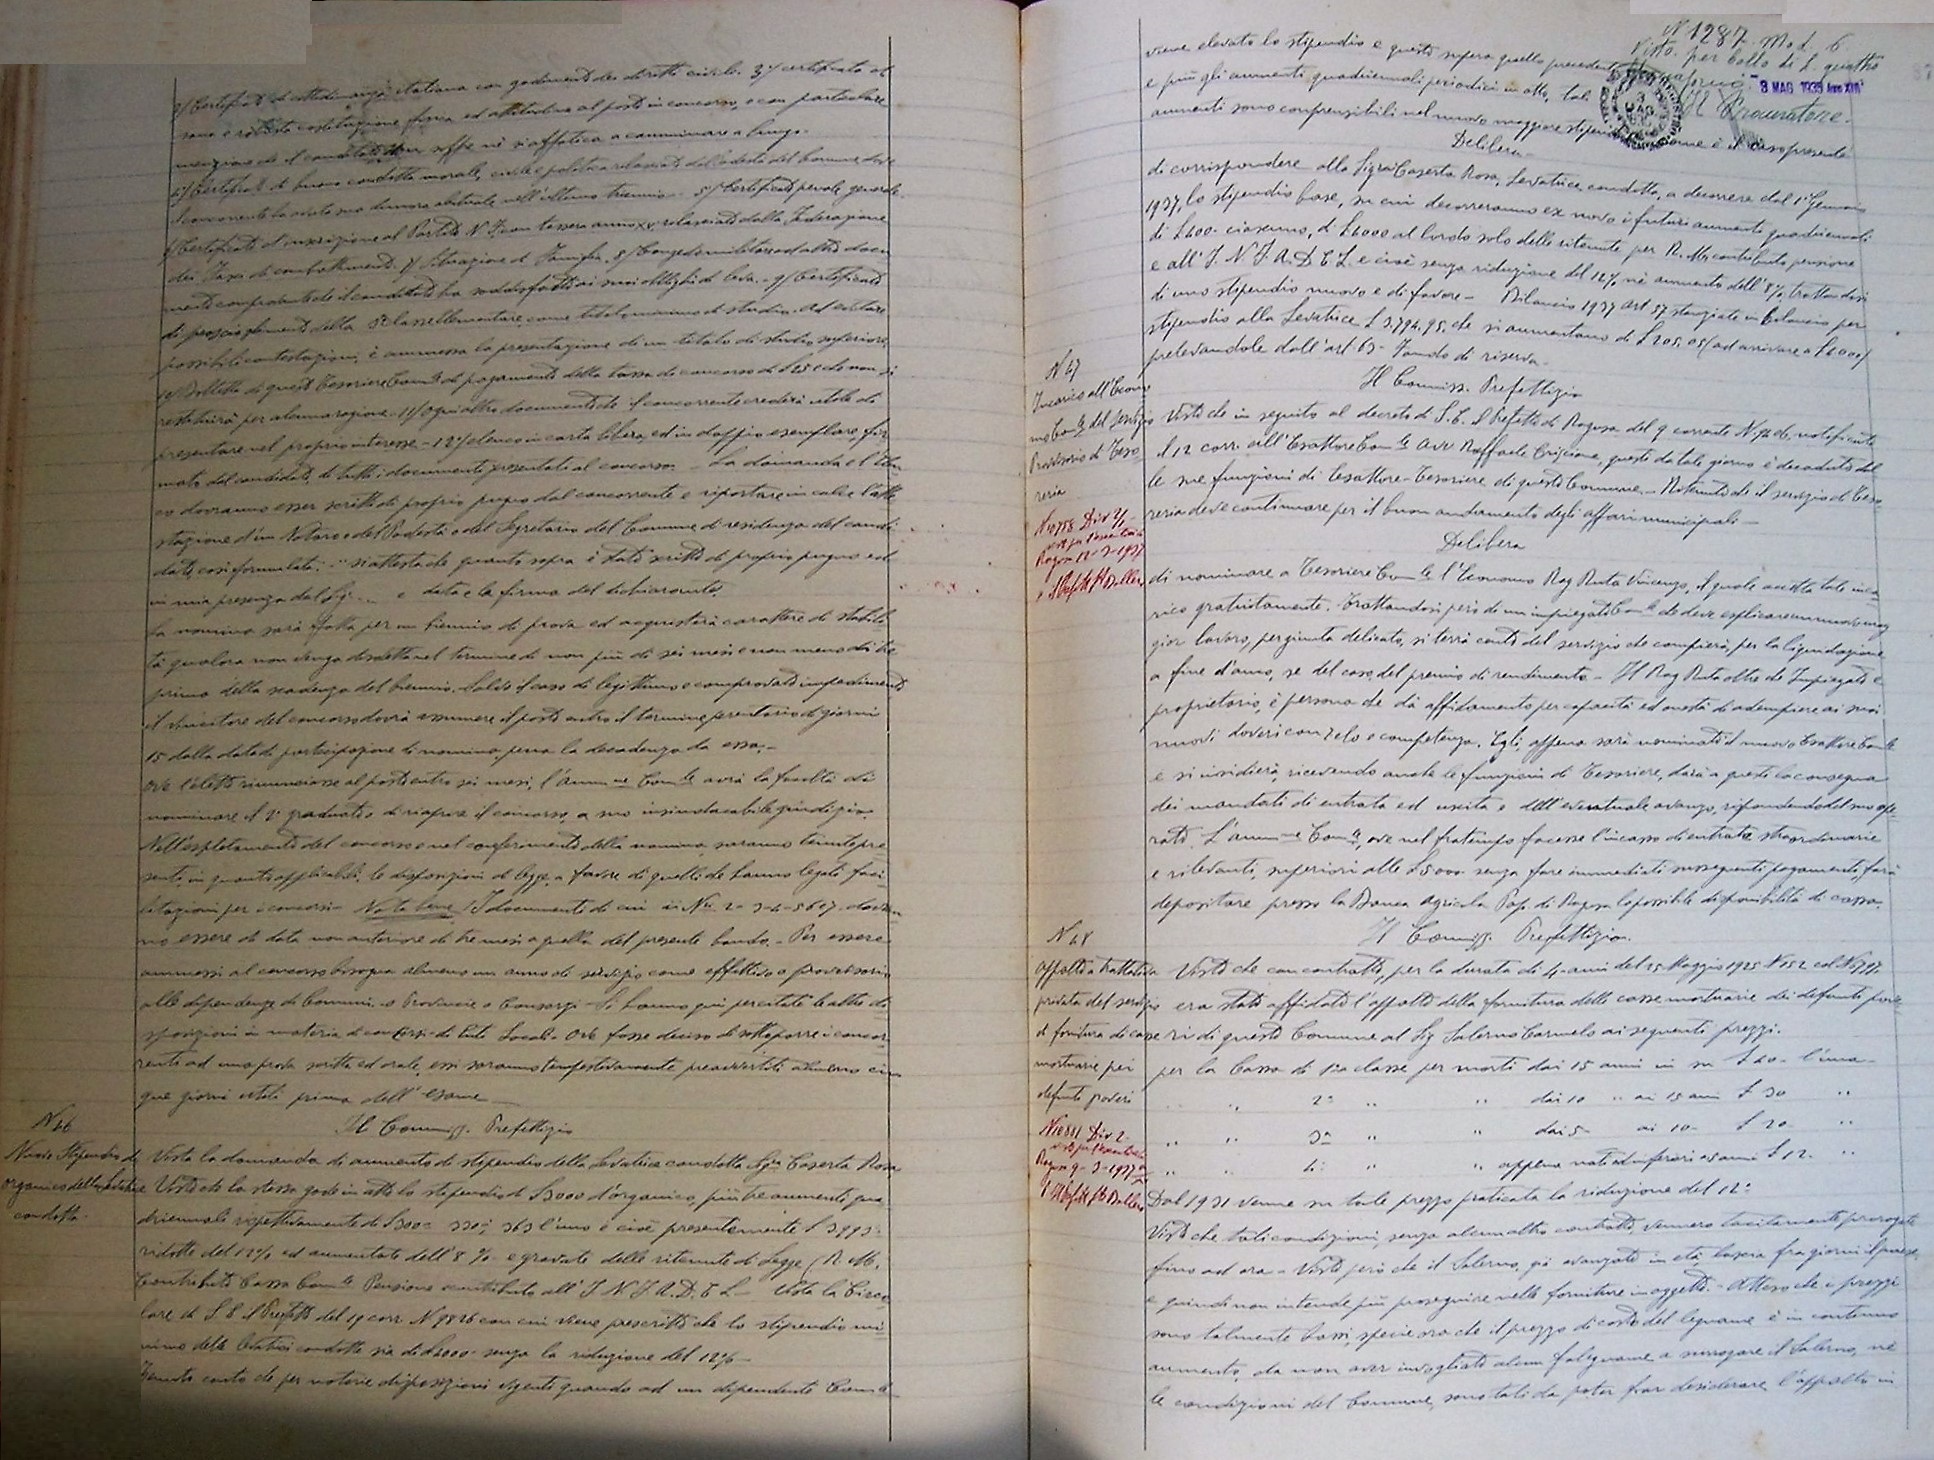 2°/ Certificato di cittadinanza italiana con godimento dei diritti civili. 3°/ certificato di
sana e robusta costituzione fisica ed attitudine al posto in concorso, e con particolare
menzione che il candidato non soffre nè si affatica a camminare a lungo.
4°/ Certificato di buona condotta morale, civile e politica rilasciato dal Podestà del Comune dove
il concorrente ha avuto sua dimora abituale nell'ultimo triennio - 5°/ Certificato penale generale.
6°/ Certificato d'inscrizione al Partito N. F. con tessera anno XV, rilasciato dalla Federazione
dei Fasci di combattimento. 7/ Situazione di Famiglia. 8/ Congedo militare od altro docu
mento comprovante che il candidato ha soddisfatto ai suoi obblighi di leva. - 9/ Certificato
di proscioglimento della 5ª classe elementare, come titolo minimo di studio. Ad evitare
possibili contestazioni, è ammessa la presentazione di un titolo di studio superiore.
10/ Bolletta di questo Tesoriere Com.le di pagamento della tassa di concorso di £ 25 che non si
restituirà per alcuna ragione - 11/ Ogni altro documento che il concorrente crederà utile di
presentare nel proprio interesse - 12°/ elenco in carta libera, ed in doppio esemplare, fir
mato dal candidato, di tutti i documenti presentati al concorso. - La domanda e l'elen
co dovranno esser scritti di proprio pugno dal concorrente e riportare in calce l'atte
stazione d'un Notaro o del Podestà o del Segretario del Comune di residenza del candi
dato, così formulata: - "si attesta che quanto sopra è stato scritto di proprio pugno ed
in mia presenza dal Sig. ... e data e la firma del dichiarante.
La nomina sarà fatta per un biennio di prova ed acquisterà carattere di stabili
tà qualora non venga disdetta nel termine di non più di sei mesi e non meno di tre
prima della scadenza del biennio. Salvo il caso di legittimo e comprovato impedimento
il vincitore del concorso dovrà assumere il posto entro il termine perentorio di giorni
15 dalla data di partecipazione di nomina, pena la decadenza da essa. -
Ove l'eletto rinunciasse al posto entro sei mesi, l'Amm.ne Com.le avrà la facoltà di
nominare il 2° graduato o di riaprire il concorso, a suo insindacabile giudizio.
Nell'espletamento del concorso e nel conferimento della nomina, saranno tenute pre
senti, in quanto applicabili, le disposizioni di legge, a favore di quelli che hanno legale faci
litazioni per i concorsi - Nota bene / I documenti di cui ai N.i 2 - 3 - 4 - 5 6 e 7 dovran
no essere di data non anteriore di tre mesi a quella del presente bando. - Per essere
ammessi al concorso bisogna almeno un anno di servizio come effettivo o provvisorio
alle dipendenze di Comuni o Provincie o Consorzi - Si hanno qui per citate le altre di
sposizioni in materia di concorsi di Enti Locali. Ove fosse deciso di sottoporre i concor
renti ad una prova scritta ed orale, essi saranno tempestivamente preavvertiti almeno cin
que giorni utili prima dell'esame
N 46
Nuovo Stipendio di
organico della Levatrice
condotta.
Il Commiss. Prefettizio
Vista la domanda di aumento di stipendio della Levatrice condotta Sig.ra Caserta Rosa
Visto che la stessa gode in atto lo stipendio di £ 3000 d'organico, più tre aumenti qua
driennali rispettivamente di £ 300 = 330 = 363 l'uno e cioè presentemente £ 3993 -
ridotte del 12% ed aumentate dell'8% e gravate delle ritenute di Legge (R. M.
Contributo Cassa Com.le Pensione contributo all'I. N. F. A. D. E. L. - Vista la Circo
lare di S. E. il Prefetto del 19 corr. N 9826 con cui viene prescritto che lo stipendio mi
nimo delle levatrici condotte sia di £ 4000 - senza la riduzione del 12% -
Tenuto conto che per notorie disposizioni vigenti quando ad un dipendente Com.le
N 1287 Mod. 6.
Visto per bollo di L. quattro
3 MAG 1939 Anno XVII
Il Procuratore.
viene elevato lo stipendio e questo supera quello precedente
e più gli aumenti quadriennali periodici in atto, tali
aumenti sono comprensibili nel nuovo maggiore stipendio come è il caso presente
Delibera -
di corrispondere alla Sig.ra Caserta Rosa, Levatrice condotta, a decorrere dal 1° Gennaio
1937, lo stipendio base, su cui decorreranno ex novo i futuri aumenti quadriennali
di £ 400 - ciascuno, di £ 4000 al lordo solo delle ritenute per R. M., contributo pensione
e all'I. N. F. A. D. E. L. e cioè senza riduzione del 12% nè aumento dell'8%, trattandosi
di uno stipendio nuovo e di favore - Bilancio 1937 art 57 stanziate in bilancio per
stipendio alla Levatrice £ 3.794.95. che si aumentano di £ 205.05 (ad arrivare a £ 4000)
prelevandole dall'art. 63 - Fondo di riserva -
N 47
Incarico all'Econo
mo Com.le del servizio
Provvisorio di Teso
reria
N 10758 Div 2/1
Ragusa 12 - 3 - 1937
Il Commiss. Prefettizio
Visto che in seguito al decreto di S. E. il Prefetto di Ragusa del 9 corrente, notificato
il 12 corr. all'Esattore Com.le Avv Raffaele Criscione, questi da tale giorno è decaduto dal
le sue funzioni di Esattore-Tesoriere di questo Comune. - Ritenuto che il servizio di Teso
reria deve continuare per il buon andamento degli affari municipali -
Delibera
di nominare a Tesoriere Com.le l'Economo Rag Ruta Vincenzo, il quale accetta tale inca
rico gratuitamente. Trattandosi però di un impiegato Com.le che deve esplicare un nuovo mag
gior lavoro, per giunta delicato, si terrà conto del servizio che compierà, per la liquidazione
a fine d'anno, se del caso, del premio di rendimento - Il Rag Ruta oltre che Impiegato è
proprietario, è persona che dà affidamento per capacità ed onestà di adempiere ai suoi
nuovi doveri con zelo e competenza. Egli, appena sarà nominato il nuovo Esattore Com.le
e si insidierà, ricevendo anche le funzioni di Tesoriere, darà a questi la consegna
dei mandati di entrata ed uscita e dell'eventuale avanzo, rispondendo del suo ope
rato. L'amm.ne Com.le, ove nel frattempo facesse l'incasso di entrate straordinarie
e rilevanti, superiori alle £ 5000 senza fare immediati susseguenti pagamenti, farà
depositare presso la Banca Agricola Pop. di Ragusa la possibile disponibilità di cassa.
N 48
Appalto a trattativa
privata del servizio
di fornitura di casse
mortuarie pei
defunti poveri
N 10881 Div 2
Ragusa 9 - 3 - 1937
Il Commiss. Prefettizio.
Visto che con contratto, per la durata di 4 anni del 25 Maggio 1925 N 152
era stato affidato l'appalto della fornitura delle casse mortuarie dei defunti pove
ri di questo Comune al Sig Salerno Carmelo ai seguenti prezzi.
per la Cassa di 1ª classe per morti dai 15 anni in su £ 40 - l'una -
" " 2ª " " dai 10 " ai 15 anni £ 30 "
" " 3ª " " dai 5 - ai 10 - £ 20 - "
" " 4ª " " appena nati ed inferiori ai 5 anni £ 12. "
Dal 1931 venne su tale prezzo praticata la riduzione del 12%
Visto che tali condizioni, senza alcun altro contratto, vennero tacitamente prorogate
fino ad ora - Visto però che il Salerno, già avanzato in età, lascia fra giorni il paese,
e quindi non intende più proseguire nelle forniture in oggetto. - Atteso che i prezzi
sono talmente bassi, specie ora che il prezzo di costo del legname è in continuo
aumento, da non aver invogliato alcun falegname a surrogare il Salerno, nè
le condizioni del Comune, sono tali da poter far desiderare l'appalto in